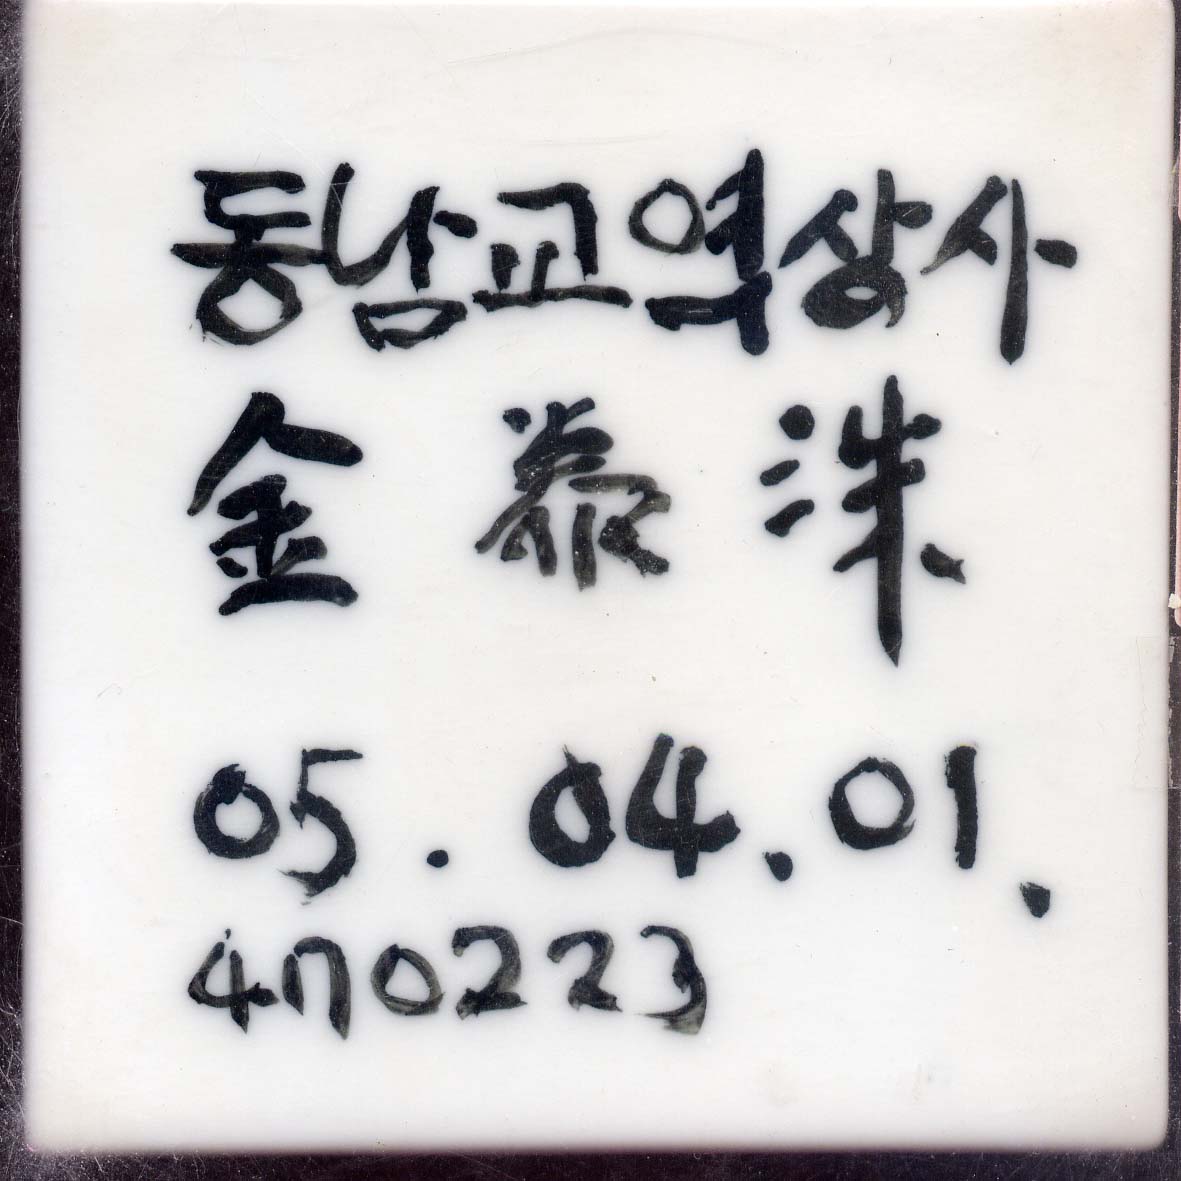 동남교역상사
金 泰 洙
05.04.01.
470223